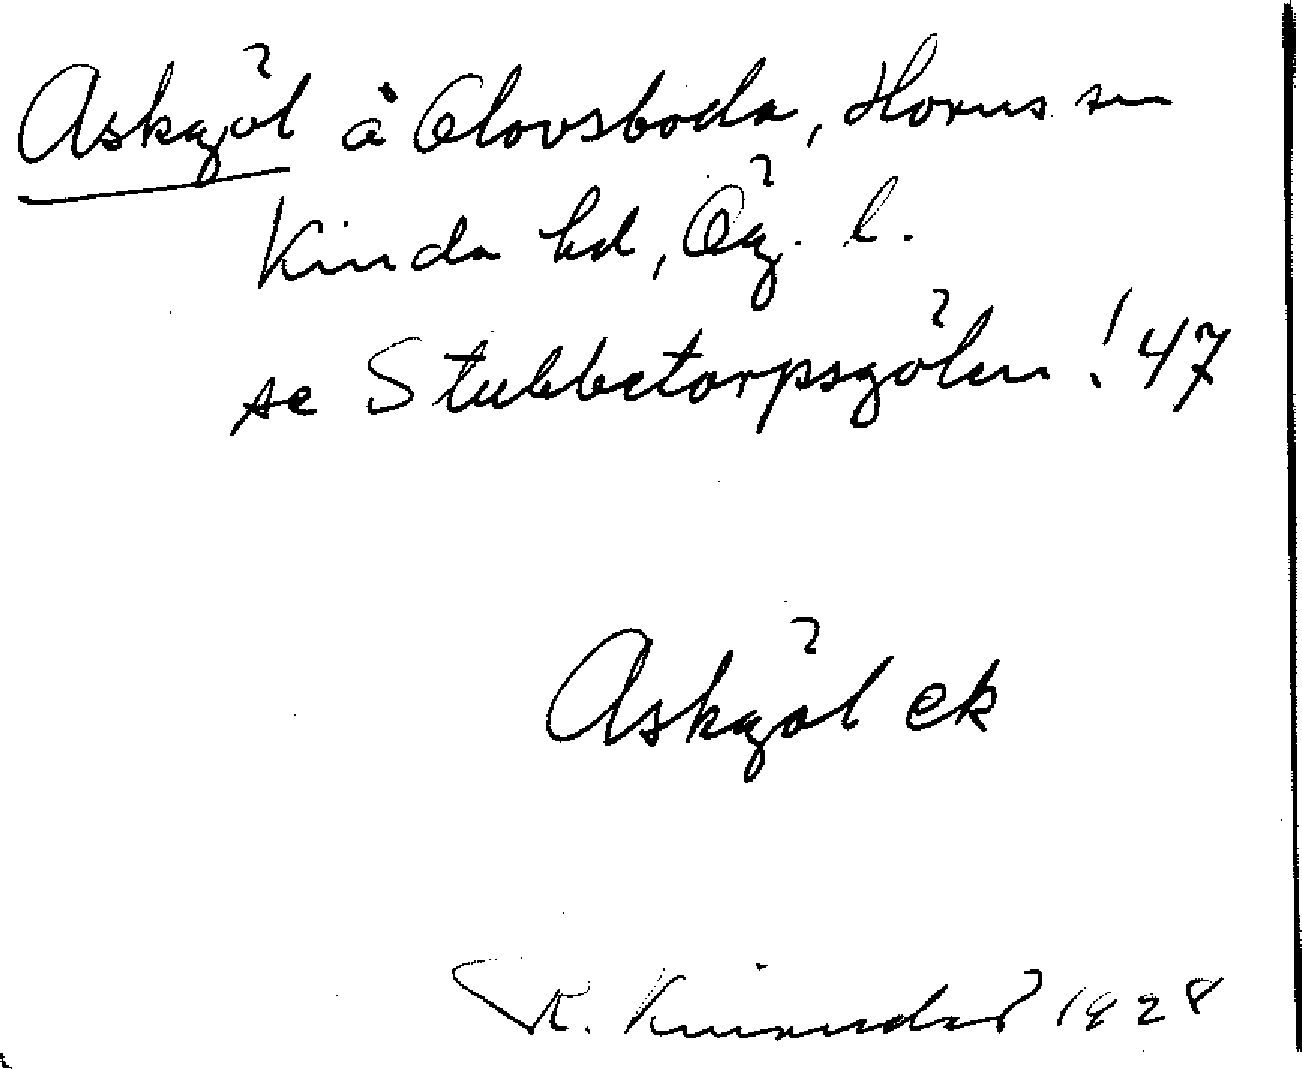 Askgöl å Olovsboda, Horns sn
Kinda hd, Ög. l.
se Stubbetorpsgölen! 47
Askgöl ek
R. 1928